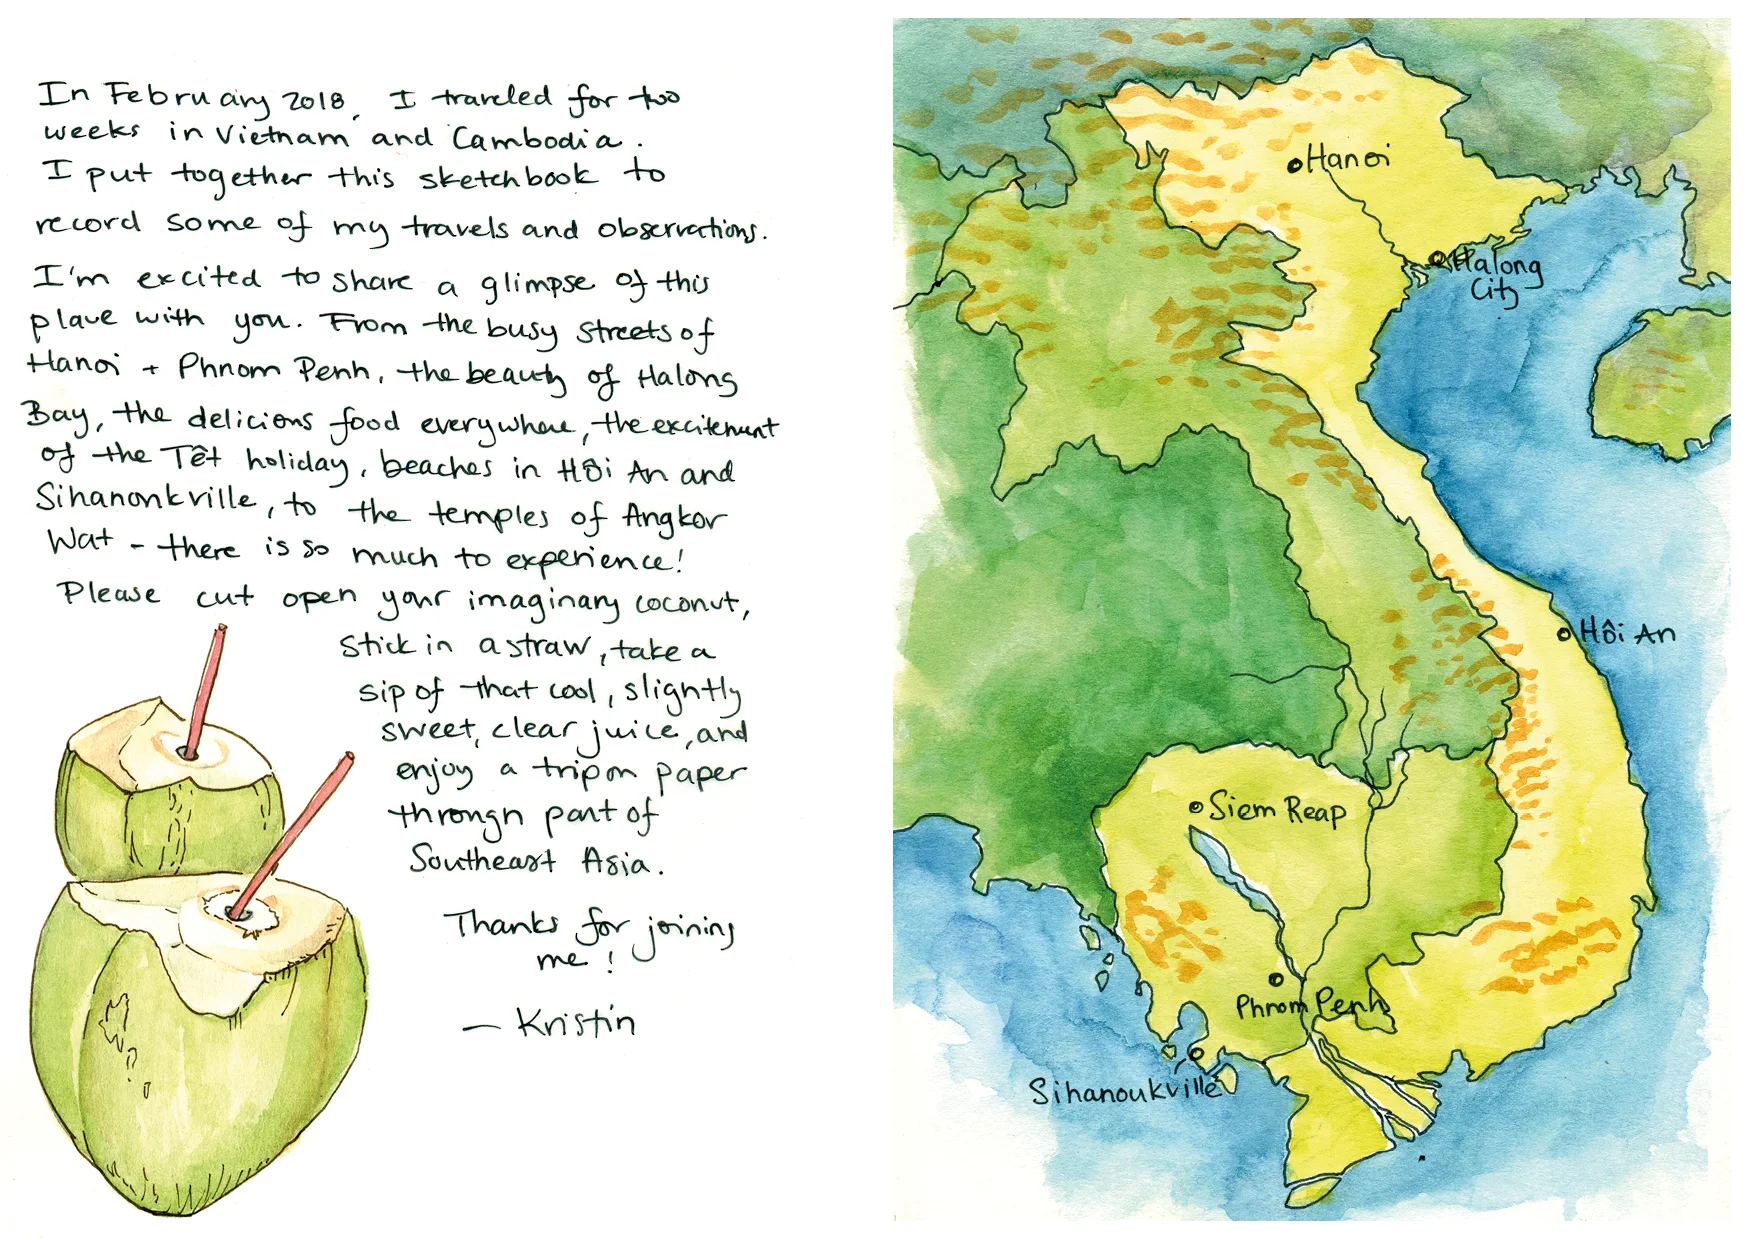 In February 2018, I traveled for two
weeks in Vietnam and Cambodia.
I put together this sketchbook to
record some of my travels and observations.
I'm excited to share a glimpse of this
place with you. From the busy streets of
Hanoi + Phnom Penh, the beauty of Halong
Bay, the delicious food everywhere, the excitement
of the Têt holiday, beaches in Hôi An and
Sihanoukville, to the temples of Angkor
Wat - there is so much to experience!
Please cut open your imaginary coconut,
stick in a straw, take a
sip of that cool, slightly
sweet, clear juice, and
enjoy a trip on paper
through part of
Southeast Asia.
Thanks for joining
me!
— Kristin
Hanoi
Halong
City
Hôi An
Siem Reap
Phnom Penh
Sihanoukville